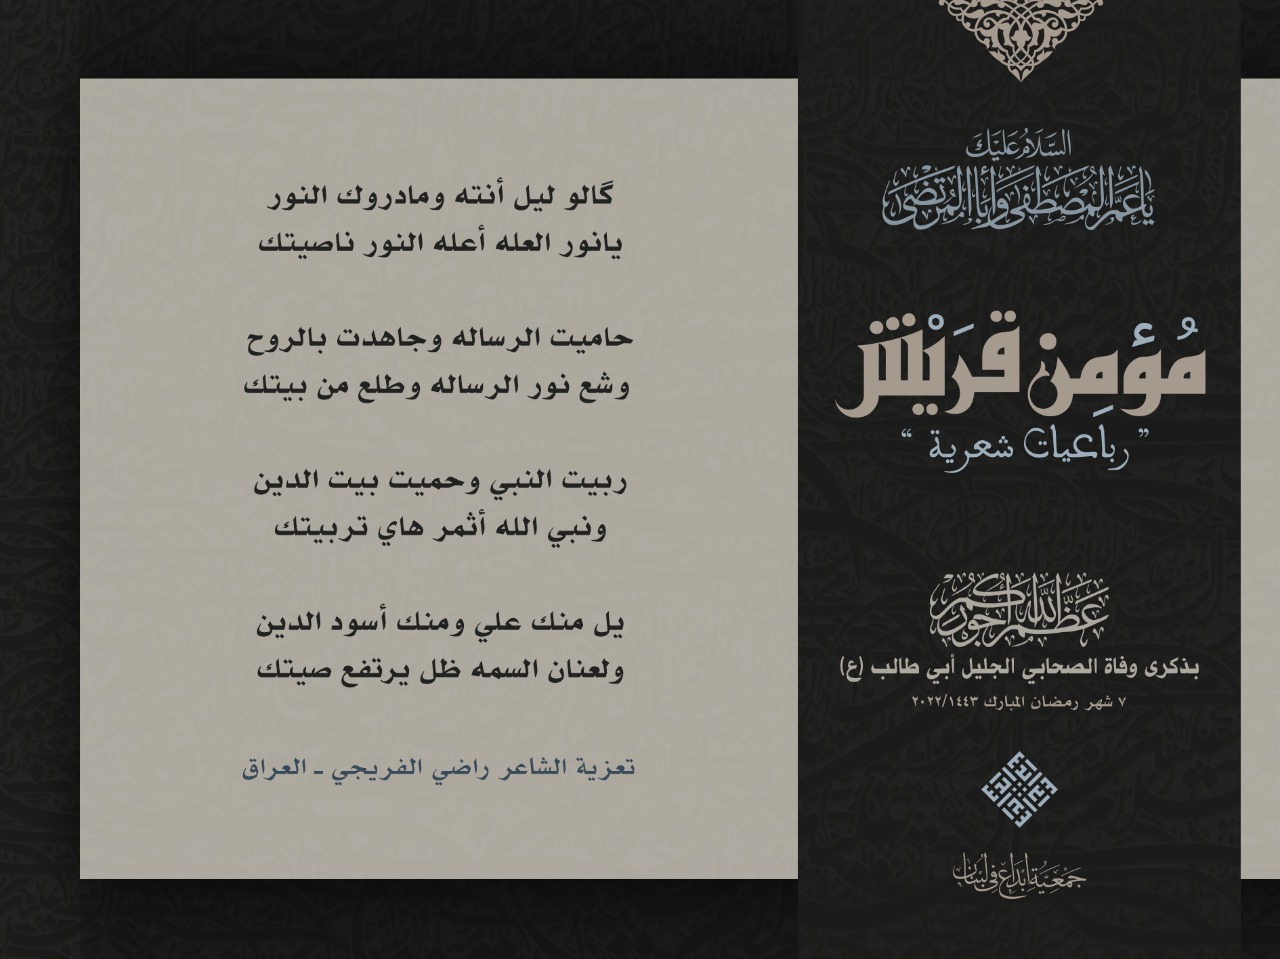 السَّلَامُ عَلَيْكَ
يَا عَمَّ المُصْطَفَى وَأَبَا المُرْتَضَى
مُؤمِن قُرَيْش
” رباعيات شعرية “
عَظَّمَ اللهُ أُجُورَكُم
بذكرى وفاة الصحابي الجليل أبي طالب (ع)
٧ شهر رمضان المبارك ٢٠٢٢/١٤٤٣
جمعية إبداع في لبنان
گالو ليل أنته ومادروك النور
يانور العله أعله النور ناصيتك
حاميت الرساله وجاهدت بالروح
وشع نور الرساله وطلع من بيتك
ربيت النبي وحميت بيت الدين
ونبي الله أثمر هاي تربيتك
يل منك علي ومنك أسود الدين
ولعنان السمه ظل يرتفع صيتك
تعزية الشاعر راضي الفريجي ـ العراق